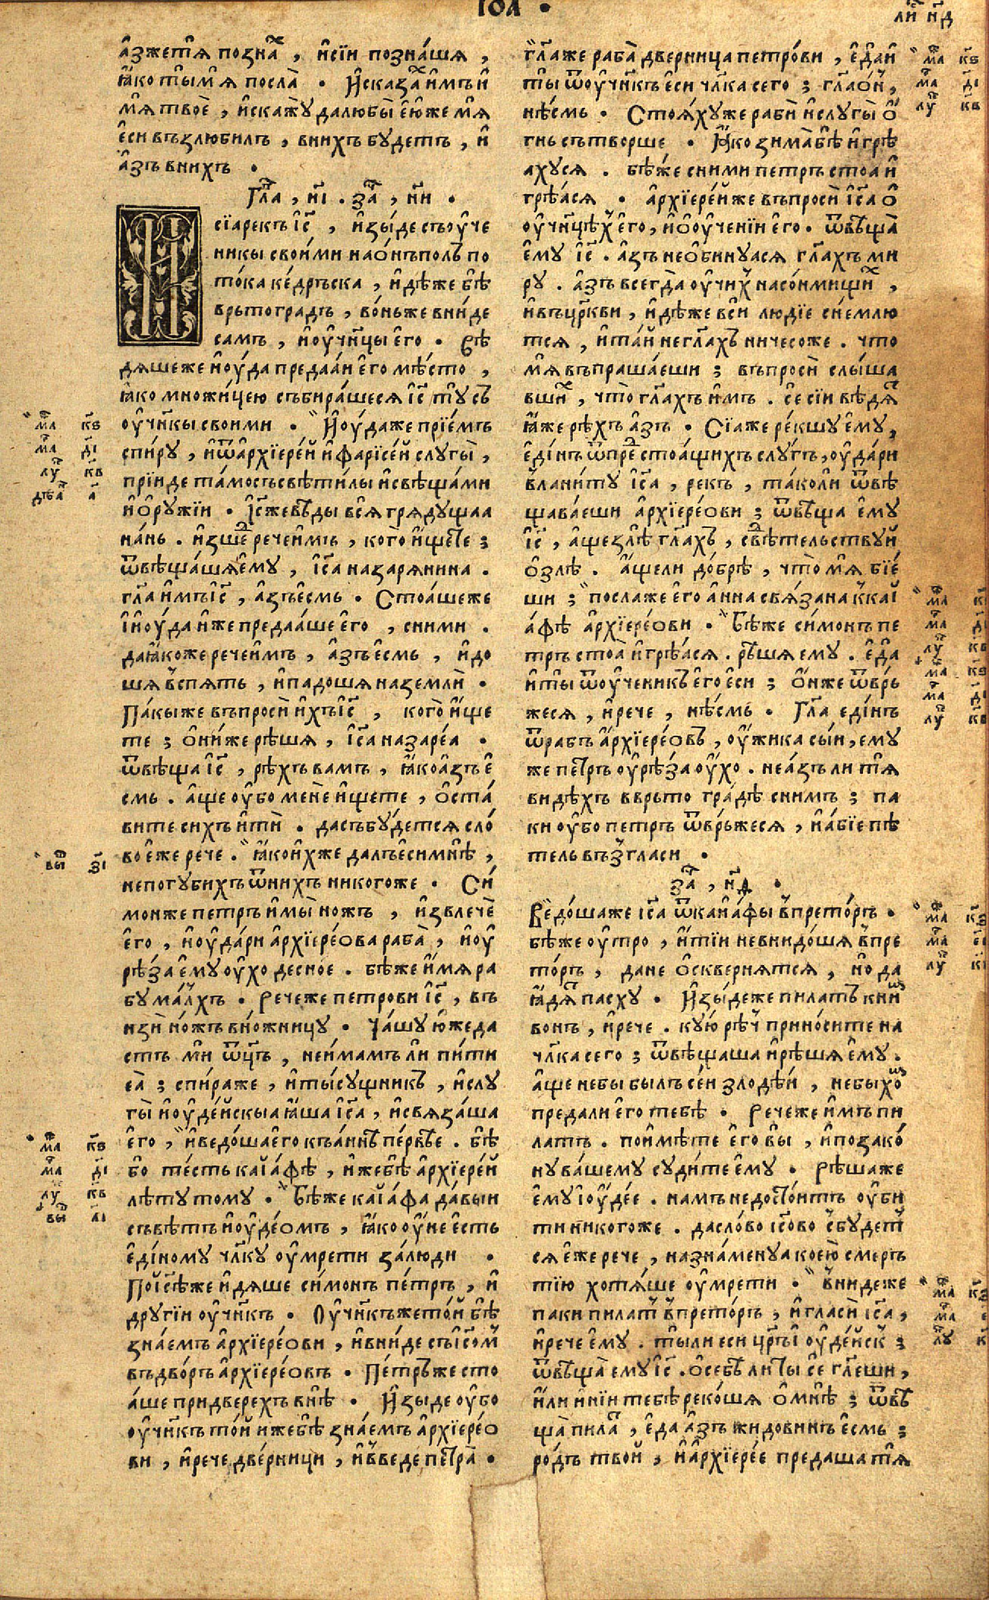 їѡа •
а҆зже тѧ позна̀ , и҆ сїи позна́шѧ ,
ꙗ҆ко ты мѧ посла̀ • И҆ сказа́хъ и҆мъ и҆
мѧ твоѐ , и҆ скажу̀ да любы̀ е҆ю́же мѧ
еси възлюбилъ , в них будетъ , и҆
а҆зъ в нихъ •
Гла , иі . за , ни •
сїа рекъ і҆с , и҆зы́де съ оуче
никы своими на онъ полъ по
то́ка ке́дръска , и҆дѣже бѣ̀
врьтоградъ , во́ньже вни́де
самъ , и҆ оу҆чн҃цы е҆го̀ • Вѣ
дѧшеже и҆ ю́да предаа́и е҆го̀ мѣ́сто ,
ꙗ҆ко множи́цею събира́шесѧ і҆с ту съ
оу҆чн҃кы своими • И҆ю́да же прїе́мъ
спи́ру , и҆ ѿ а҆рхїере́й и҆ фарїсе́й слугы̀ ,
прїи́де та́мо съ свѣти́лы и҆ свѣща́ми
и҆ о҆ру́жїи • І҆с же вѣды всѧ грѧду́щаа
на́нь . и҆зше́дъ рече и҆мъ , кого̀ и҆щете ;
ѿвѣща́шѧ е҆му , і҆са назарѧнина .
гла и҆мъ і҆с , а҆зъ е҆смь • Стоа́шеже
и҆ і҆ю́да и҆же предаа́ше е҆го̀ , с ними .
да ꙗ҆коже рече и҆мъ , а҆зъ е҆смь , и҆до
шѧ въспѧть , и҆ падошѧ на землѝ •
Па́кы же въпросѝ и҆хъ і҆с , кого̀ и҆ще
те ; о҆ни́же рѣ́шѧ , і҆са назаре́а •
ѿвѣща і҆с , рѣ́хъ вамъ , ꙗ҆ко а҆зъ е҆
смь . а҆ще оу҆бо мене и҆щете , о҆ста́
вите сихъ и҆тѝ • да съ бу́детсѧ сло́
во е҆же рече . ꙗ҆ко и҆хже далъ е҆си мнѣ̀ ,
не погуби́хъ ѿ них никогоже • Си́
мон же петръ и҆мы́ ножъ , и҆звлечѐ
е҆го̀ , и҆ оу҆да́ри а҆рхїере́ова раба̀ , и҆ оу҆
рѣ́за е҆му оу҆хо десное . бѣ́же и҆мѧ ра
бу ма́лхъ • Рече же петрови і҆с , въ
нзѝ но́жъ в но́жницу • Ча́шу ю҆же да
стъ ми ѿц҃ъ , не и҆мамъ ли пи́ти
еа̀ ; спи́ра же , и҆ ты́сущникъ , и҆ слу
гы̀ и҆ю҆де́йскыа ꙗ҆ша і҆са , и҆ связа́ша
е҆го̀ , и҆ ведо́ша е҆го къ а́ннѣ пе́рвѣе . бѣ̀
бо те́сть каїа́фѣ , и҆же бѣ̀ а҆рхїере́й
лѣ́ту тому̀ • Бѣ́же каїа́фа да́выи
съвѣ́тъ и҆ю҆де́омъ , ꙗ҆ко оу҆не е҆сть
е҆ди́ному чл҃ку оу҆мрети за́ люди •
По і҆сѣ́же и҆дѧше си́монъ пе́тръ , и҆
другїи оу҆чн҃къ • Оу҆чн҃къ же то́й бѣ̀
зна́емъ а҆рхїере́ови , и҆ вни́де съ і҆сомъ
въ дво́ръ а҆рхїере́овъ • Пе́тръ же сто
а́ше при дверехъ внѣ̀ • И҆зы́де оу҆бо
оу҆чн҃къ то́й и҆же бѣ̀ зна́емъ а҆рхїере́о
ви , и҆ рече две́рници , и҆ в̾веде петра̀ •
гл҃аже раба̀ дверница петро́ви , е҆да и҆
ты̀ ѿ оу҆чн҃къ еси чл҃ка сего ; гла о҆н ,
нѣ́смь • Стоѧ́ху же рабѝ и҆ слугы̀ о҆
гнь сътворше • Ꙗ҆ко зима бѣ̀ и҆ грѣ
ахусѧ . бѣ́же с ними петръ стоа и҆
грѣ́асѧ • а҆рхїере́й же въпросѝ і҆са о҆
оу҆чн҃цѣ́х е҆го , и҆ о҆ оу҆че́нїи е҆го • ѿвѣща̀
е҆му і҆с . а҆зъ не о҆бинуасѧ гл҃ахъ ми
ру . а҆зъ всегда̀ оу҆чи́х на со́нмищи ,
и҆ въ цр҃кви , и҆дѣже всѝ людїе сне́млю
тсѧ , и҆ та́й не гл҃ахъ ничесоже . что
мѧ въпраша́еши ; въпросѝ слы́ша
вши , что̀ гл҃ахъ и҆мъ . се сїи вѣ́дѧ
ꙗ҆же рѣ́хъ а҆зъ • Сїа же ре́кшу е҆му ,
е҆ди́нъ ѿ пре стоа́щихъ слугъ , оу҆да́ри
в ланиту і҆са , рекъ , та́ко ли ѿвѣ
щава́еши а҆рхїере́ови ; ѿвѣща е҆му
і҆с , а҆ще злѣ̀ гл҃ахъ , свѣ́тельствуй
о҆ злѣ . а҆щели до́брѣ , что̀ мѧ бїе́
ши ; посла же е҆го а҆нна свѧ́зана к каї
а́фѣ а҆рхїере́ови . Бѣ́же си́монъ пе
тръ стоа̀ и҆ грѣ́асѧ . рѣша ему . е҆да
и҆ ты̀ ѿ оу҆ченикъ е҆го е҆си ; о҆н же ѿврь
жесѧ , и҆ рече , нѣ́смь • Гла е҆ди́нъ
ѿ рабъ а҆рхїере́овъ , оу҆жика сы́и , ему
же петръ оу҆рѣ́за оу҆хо . не а́зъ ли тѧ
видѣхъ в врьто гра́дѣ с нимъ ; па
ки оу҆бо петръ ѿврьжесѧ , и҆ а҆бїе пѣ
тель възгласи •
за , нд •
Ведо́ша же і҆са ѿ каїа́фы в̾ прето́ръ •
бѣ́же оу҆тро , и҆ тїи не внидо́шѧ в̾ пре
то́ръ , да не о҆сквернѧтсѧ , но да
ꙗ҆дѧ пасху • И҆зы́де же пилатъ к ни
вонъ , и҆ рече . кую рѣч прино́сите на
чл҃ка сего ; ѿвѣщаша и҆ рѣ́шѧ е҆му .
а҆ще не бы былъ се́й злодѣ́й , не быхо
предали е҆го тебѣ̀ • Рече же и҆мъ пи
латъ . поимѣ́те е҆го вы̀ , и҆ по зако́
ну ва́шему суди́те е҆му • Рѣ́шаже
е҆му і҆ю҆де́е . намъ недосто́итъ оу҆би
ти никогоже . да сло́во і҆сово сбу́дет
сѧ е҆же рече , назна́менуа коею сме́рть
тїю хотѧ́ше оу҆мрети • вниде же
паки пилат в̾ прето́ръ , и҆ гласѝ і҆са ,
и҆ рече е҆му . ты ли еси цр҃ь и҆ю҆де́йск ;
ѿвѣща̀ ему і҆с . о҆ себѣ ли ты се гл҃еши ,
и҆ли и҆нїи тебѣ̀ реко́шѧ о҆ мнѣ̀ ; ѿвѣ
ща̀ пила , е҆да а҆зъ жидовинъ е҆смь ;
ро́дъ тво́й , и҆ а҆рхїере́е предаша тѧ